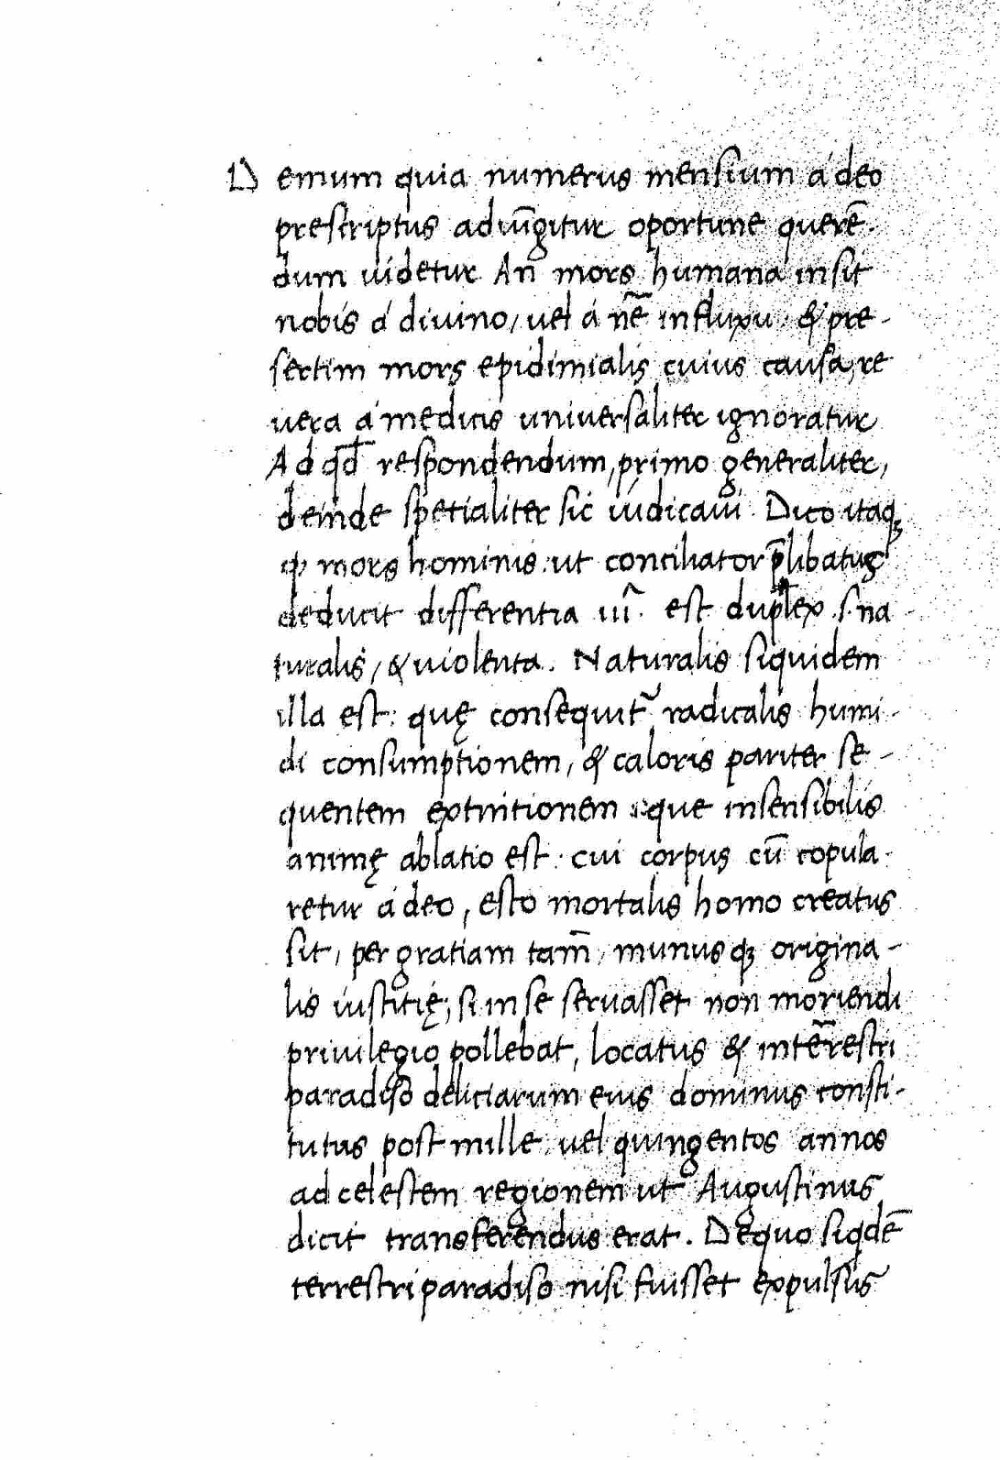 Demum quia numerus mensium a deo
prescriptus adiūgitur oportune querē-
dum uidetur An̄ mors humana insit
nobis á diuino, uel á nr̄e influxu, & pre-
sertim mors epidimialis cuius causa, re
uera a' medicis uniuersaliter ignoratur
Ad qd̄ respondendum, primo generaliter,
deinde spetialiter sic iudicaui. Dico itaqꝫ
ꝙ mors hominis ut conciliator p̄libatus
deducit differentia iii^. est duplex .s. na
turalis, & uiolenta. Naturalis siquidem
illa est: quę consequit᷑ radicalis humi-
di consumptionem, & caloris pariter se-
quentem extinctionem que insensibilis
animę ablatio est: cui corpus cū copula-
retur á deo, esto mortalis homo creatus
sit, per gratiam tam̄, munusqꝫ origina-
lis iustitię, si in se seruasset non moriendi
priuilegio pollebat, locatus & in tēr̄estri
paradiso deliciarum eius dominus consti-
tutus post mille uel quingentos annos
ad celestem regionem ut Augustinus
dicit transferendus erat. De quo siqdē
terrestri paradiso nisi fuisset expulsus